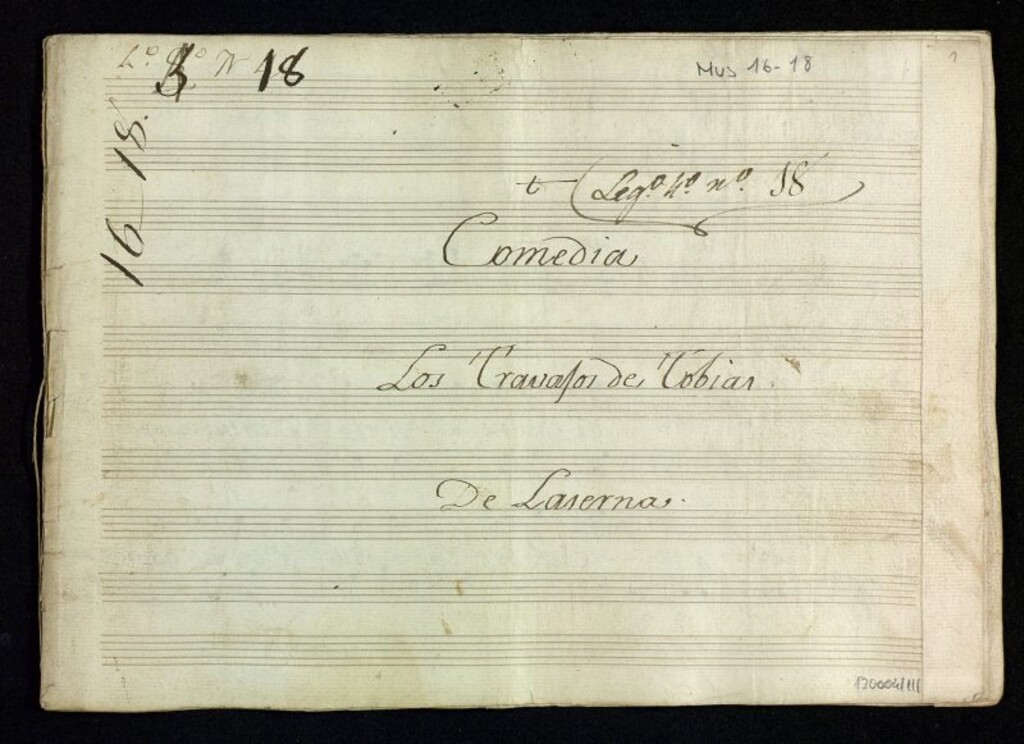 Lº Nº 18
Mus 16-18
1
16 18.
Legº 4º nº. 18
Comedia
Los Travajos de Tobias
De Laserna.
120004/III